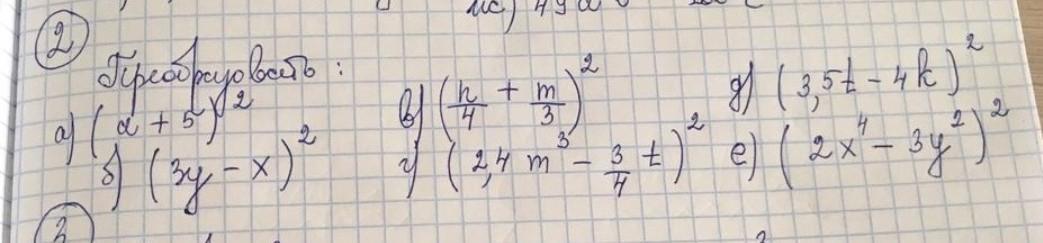 2
Преобразовать:
а) (a + 5)²
б) (3y - x)²
в) (n/4 + m/3)²
г) (2,4 m³ - 3/4 t)²
д) (3,5t - 4k)²
е) (2x⁴ - 3y²)²
3